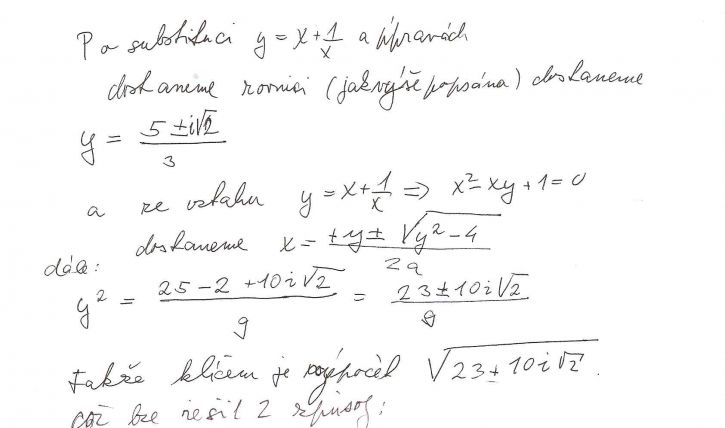 Po substituci y = x + 1/x a úpravách
dostaneme rovnici (jak výše popsána) dostaneme
y = (5 ± i√2)/3
a ze vztahu y = x + 1/x ⇒ x² - xy + 1 = 0
dostaneme x = (+y ± √(y² - 4))/2a
dále:
y² = (25 - 2 + 10i√2)/9 = (23 ± 10i√2)/9
takže klíčem je výpočet √(23 ± 10i√2).
což lze řešit 2 způsoby: